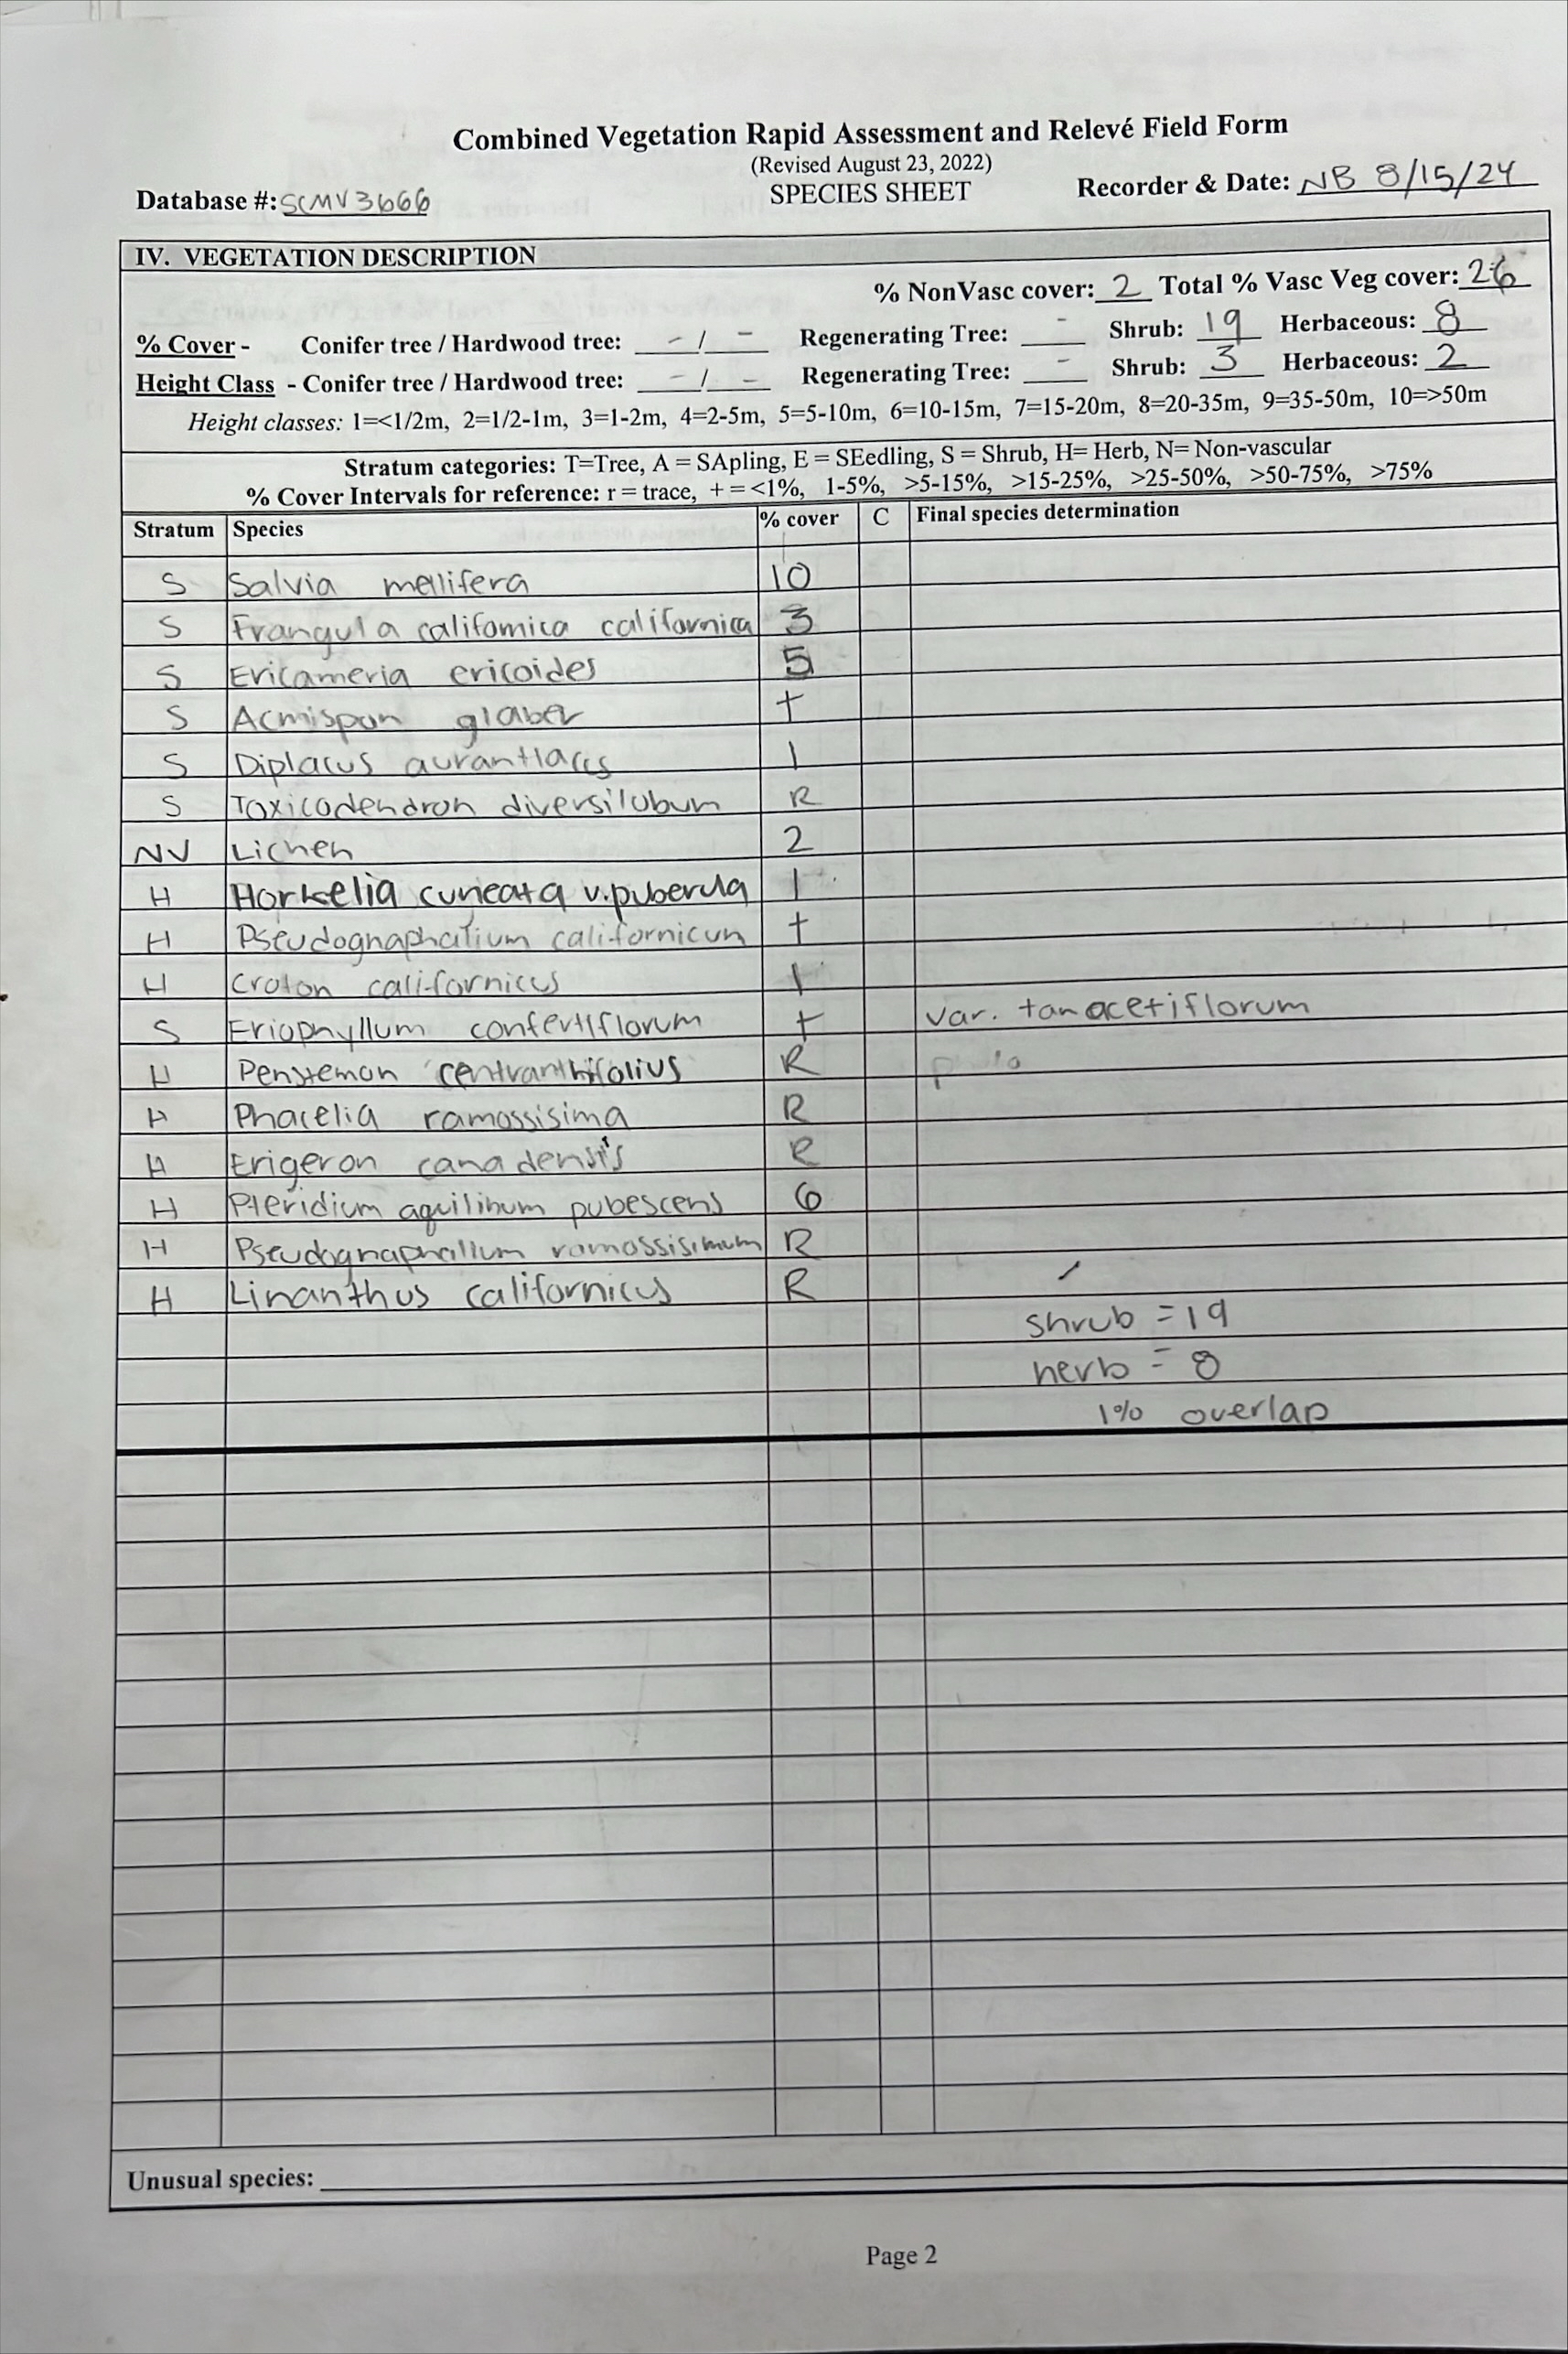 Combined Vegetation Rapid Assessment and Relevé Field Form
(Revised August 23, 2022)
Database #: SCMV3666 SPECIES SHEET Recorder & Date: NB 8/15/24
IV. VEGETATION DESCRIPTION
% NonVasc cover: 2 Total % Vasc Veg cover: 26
% Cover - Conifer tree / Hardwood tree: - / - Regenerating Tree: - Shrub: 19 Herbaceous: 8
Height Class - Conifer tree / Hardwood tree: - / - Regenerating Tree: - Shrub: 3 Herbaceous: 2
Height classes: 1=<1/2m, 2=1/2-1m, 3=1-2m, 4=2-5m, 5=5-10m, 6=10-15m, 7=15-20m, 8=20-35m, 9=35-50m, 10=>50m
Stratum categories: T=Tree, A = SApling, E = SEedling, S = Shrub, H= Herb, N= Non-vascular
% Cover Intervals for reference: r = trace, + = <1%, 1-5%, >5-15%, >15-25%, >25-50%, >50-75%, >75%
Stratum Species % cover C Final species determination
S Salvia mellifera 10
S Frangula californica californica 3
S Ericameria ericoides 5
S Acmispon glaber +
S Diplacus aurantiacus 1
S Toxicodendron diversilobum R
NV Lichen 2
H Horkelia cuneata v. puberula 1
H Pseudognaphalium californicum +
H Croton californicus 1
S Eriophyllum confertiflorum + var. tanacetiflorum
H Penstemon centranthifolius R
H Phacelia ramossisima R
H Erigeron canadensis R
H Pteridium aquilinum pubescens 6
H Pseudognaphalium ramossisimum R
H Linanthus californicus R
shrub = 19
herb = 8
1% overlap
Unusual species:
Page 2